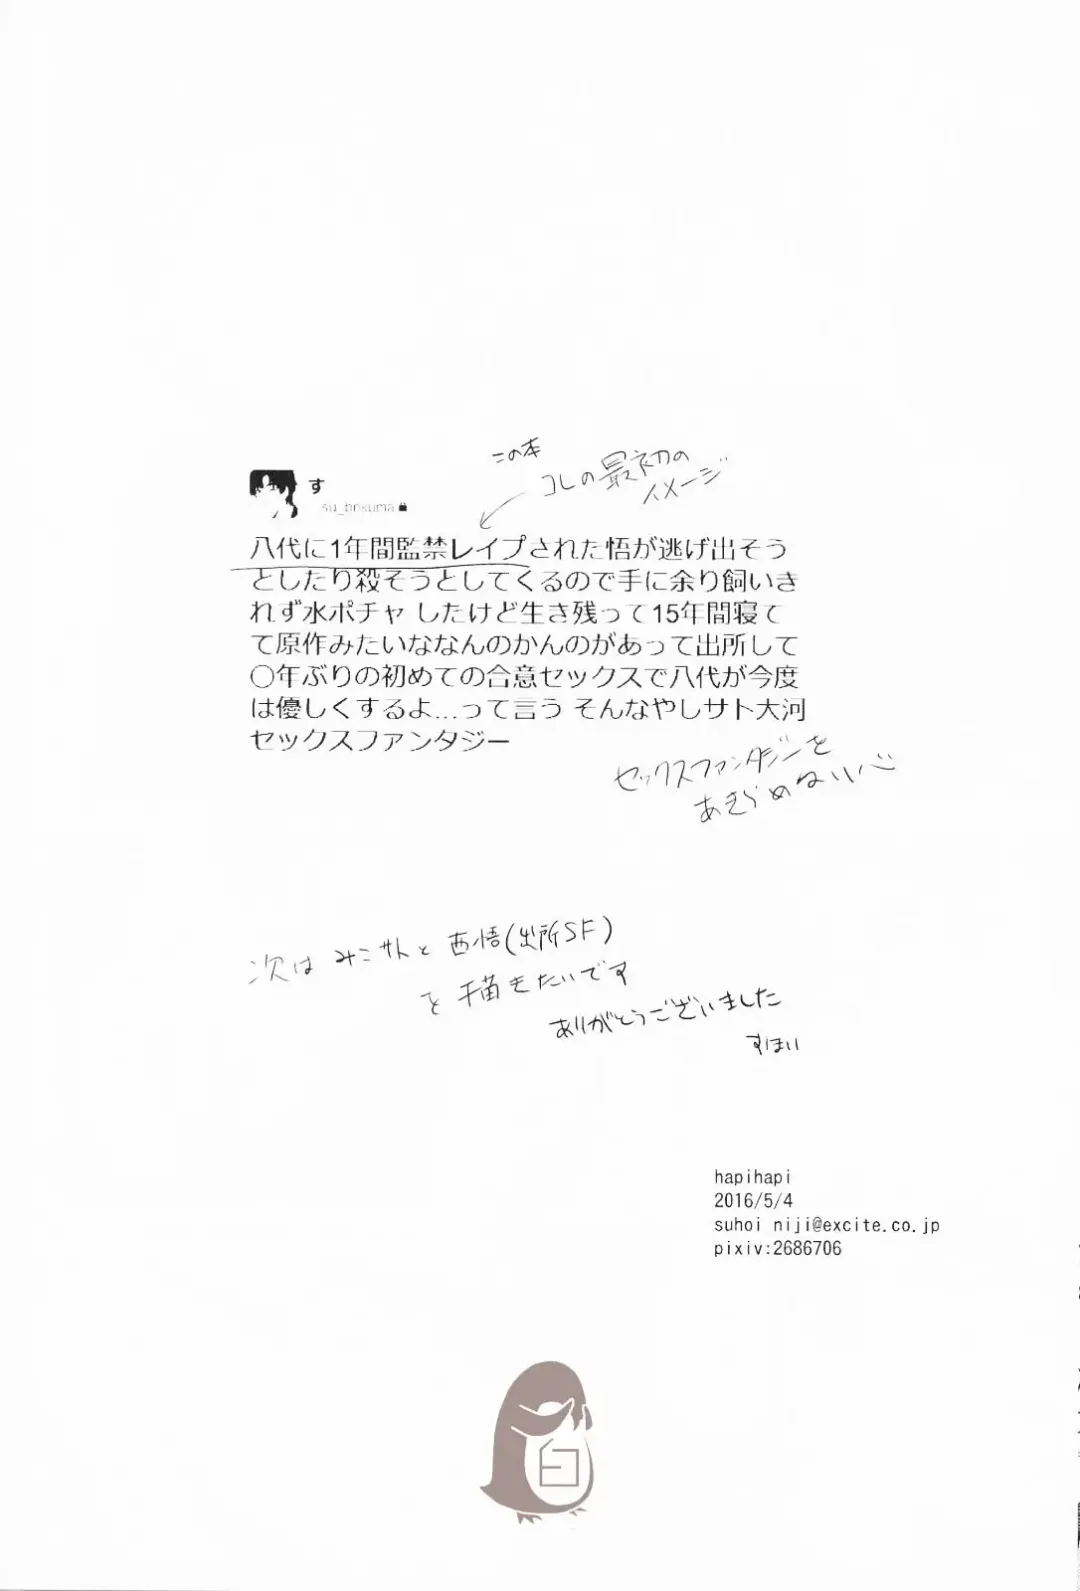 この本
コレの最初の
イメージ
す
八代に1年間監禁レイプされた悟が逃げ出そう
としたり殺そうとしてくるので手に余り飼いき
れず水ポチャ したけど生き残って15年間寝て
て原作みたいななんのかんのがあって出所して
〇年ぶりの初めての合意セックスで八代が今度
は優しくするよ…って言う そんなやしサト大河
セックスファンタジー
セックスファンタジーを
あきらめない心
次は みこサトと 西悟(出所SF)
を描きたいです
ありがとうございました
すほい
hapihapi
2016/5/4
suhoi niji@excite.co.jp
pixiv:2686706